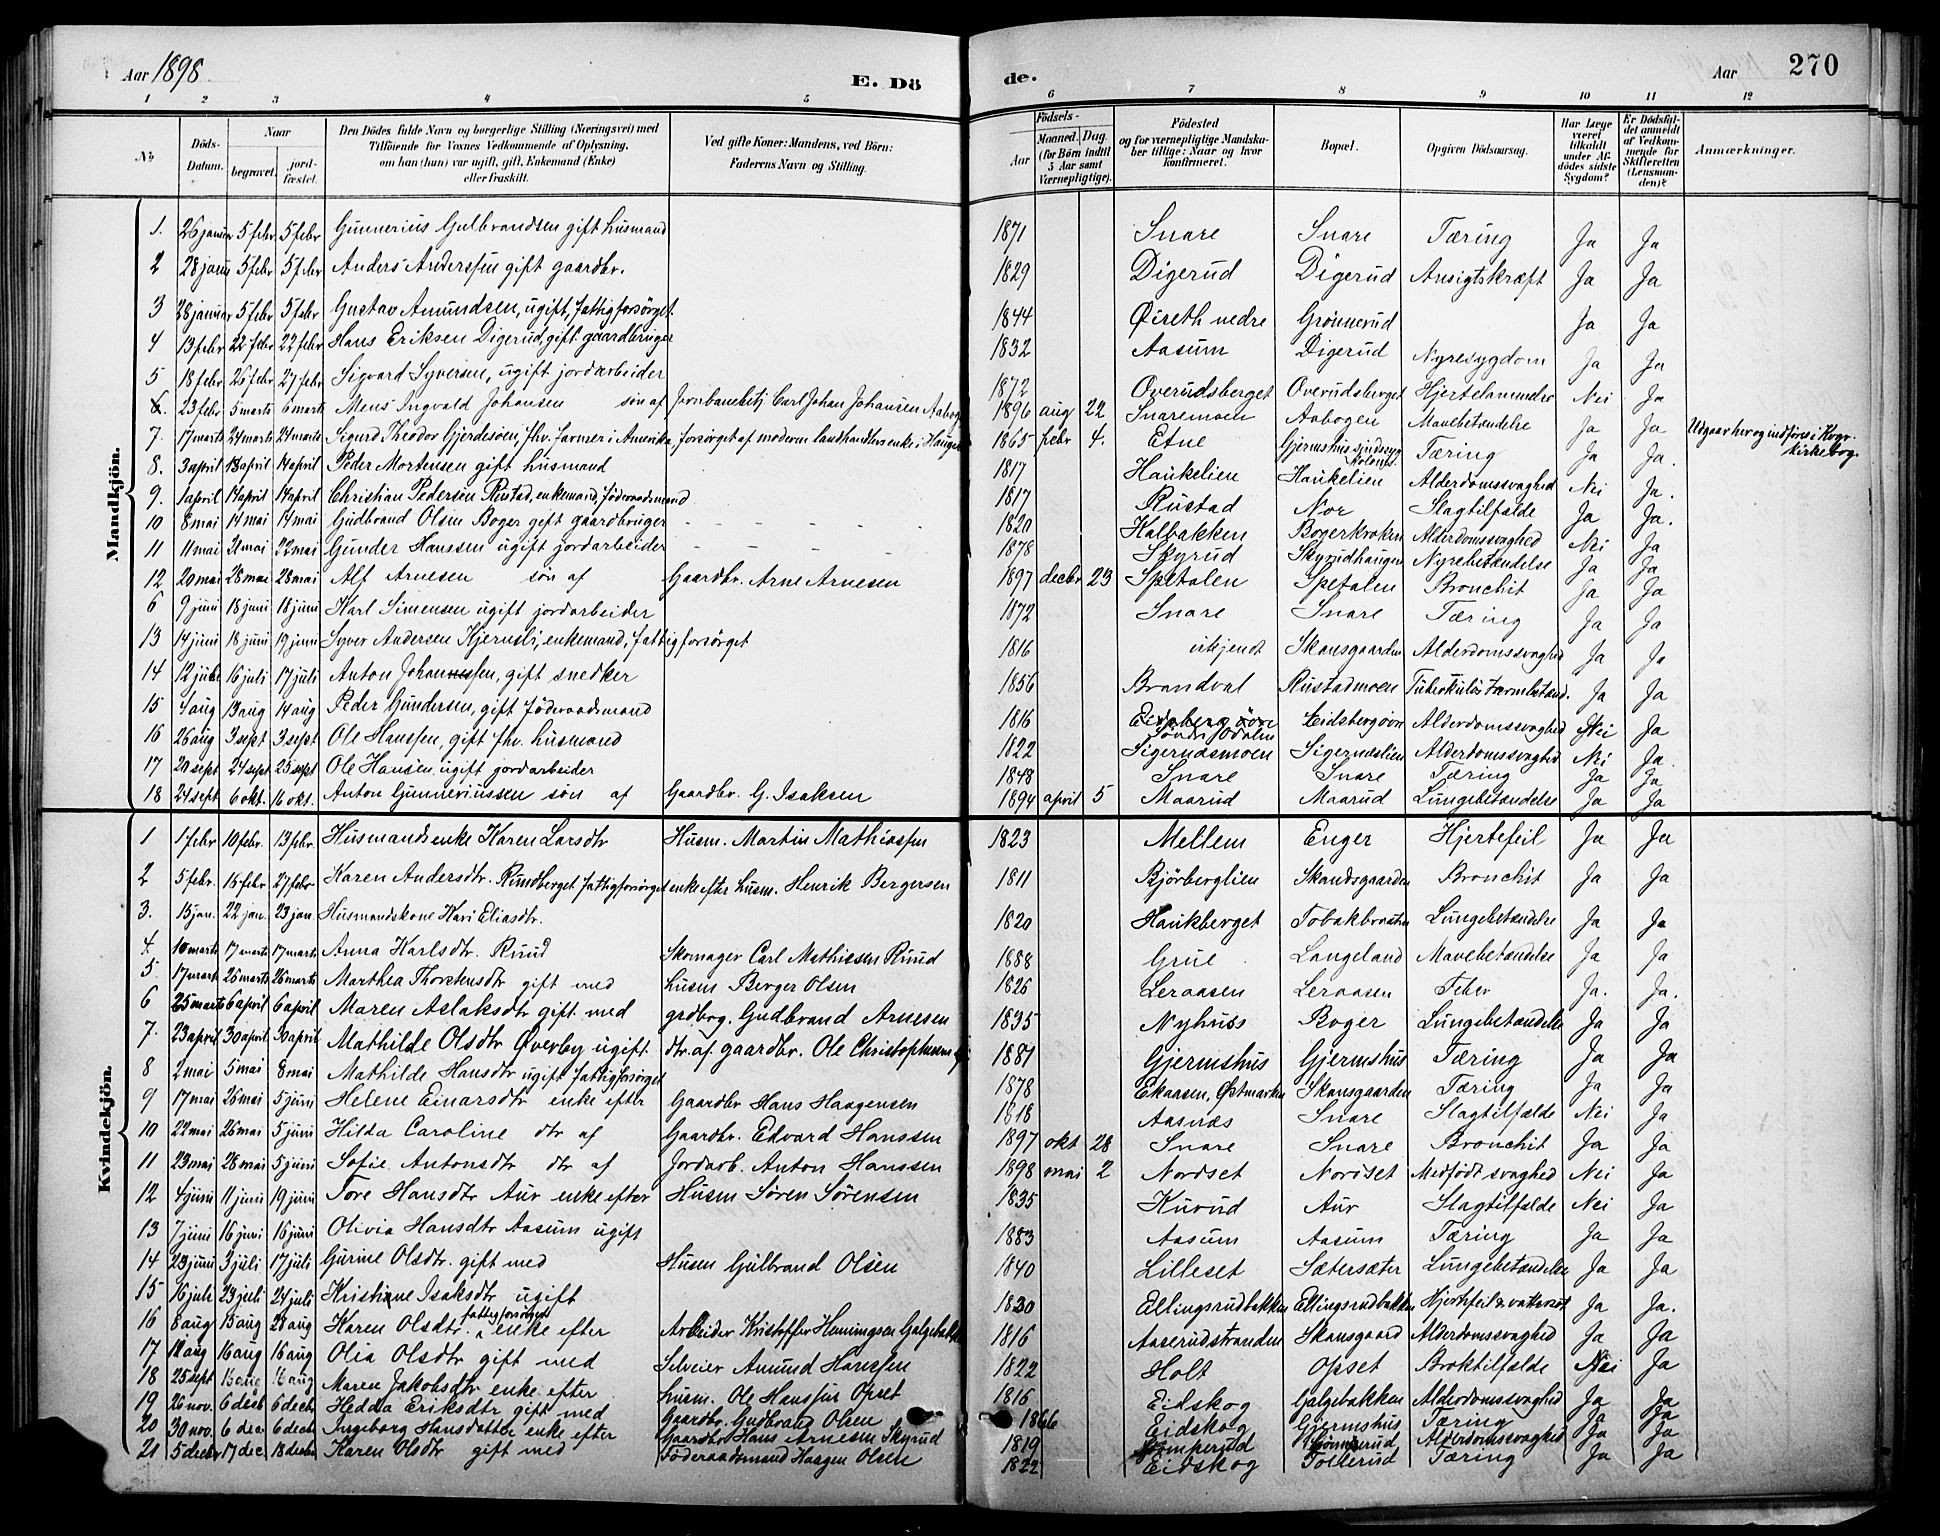 Aar 1898
E. Dö
de.
Aar
270
1 2 3 4 5 6 7 8 9 10 11 12
№
Döds-Datum.
Naar
begravet.
jordfæstet.
Den Dödes fulde Navn og borgerlige Stilling (Næringsvei) med
Tilföiende for Voxnes Vedkommende af Oplysning,
om han (hun) var ugift, gift, Enkemand (Enke)
eller fraskilt.
Ved gifte Koner: Mandens, ved Börn:
Faderens Navn og Stilling.
Födsels-
Aar
Maaned. Dag
(for Börn indtil
5 Aar samt
Værnepligtige).
Födested
og for værnepligtige Mandskaber tillige: Naar og hvor
konfirmeret.
Bopæl.
Opgiven Dödsaarsag.
Har Læge
været
tilkaldt
under Afdödes sidste
Sygdom?
Er Dödsfaldet anmeldt
af Vedkommende for
Skifteretten
(Lensmanden)?
Anmærkninger.
Mandkjön.
1. 26 januar 5 febr 5 febr Gunnerius Gulbrandsen gift husmand 1871 Snare Snare Tæring Ja Ja
2 28 janu 5 febr 5 febr Anders Anderssen gift gaardbr. 1829 Digerud Digerud Ansigtskræft Ja Ja
3 28 januar 5 febr 5 febr Gustav Amundsen, ugift, fattigforsörget 1844 Øireth nedre Grönnerud Ja Ja
4 13 febr 22 febr 22 febr Hans Eriksen Digerud, gift gaardbruger 1832 Aasum Digerud Nyresygdom Ja Ja
5 18 febr 26 febr 27 febr Sigvard Syversen, ugift jordarbeider 1872 Overudsberget Overudsberget Hjertelammelse Nei Ja
6. 23 febr 5 marts 6 marts Mens Ingvald Johansen sön af Jernbanebetj. Carl Johan Johansen Aabog 1896 aug 22 Snaremoen Aabogen Mavebetændelse Ja Ja
7. 17 marts 24 marts 24 marts Sigurd Theodor Gjerdesöen, fhv. farmer i Amerika, forsörget af moderen landhandlerenke i Haugesu 1865 febr 4. Etne Gjermshus sindssyg koloni Tæring Ja Ja. Udgaar her og indföres i Kvgr. kirkebog.
8. 3 april 13 april 14 april Peder Mortensen gift husmand 1817 Haukelien Haukelien Alderdomssvaghed Nei Ja.
9. 1 april 14 april 14 april Christian Pedersen Rustad, enkemand, föderaadsmand 1817 Rustad Nor Slagtilfælde Ja Ja.
10 8 mai 14 mai 14 mai Gudbrand Olsen Boger gift gaardbruger 1820 Kalbakken Bogerkroken Alderdomssvaghed Nei Ja
11 11 mai 21 mai 22 mai Gunder Hanssen ugift jordarbeider 1878 Skyrud Skyrudhaugen Nyrebetændelse Ja Ja
12 20 mai 28 mai 28 mai Alf Arnesen sön af Gaardbr. Arne Arnesen 1897 decbr 23 Spetalen Spetalen Bronchit Ja Ja
6 9 juni 18 juni 18 juni Karl Simensen ugift jordarbeider 1872 Snare Snare Tæring Ja Ja
13 14 juni 18 juni 19 juni Syver Andersen Kjernsli, enkemand, fattigforsörget 1816 ukjendt Skansgaarden Alderdomssvaghed Ja Ja
14 12 juli 16 juli 17 juli Anton Johannessen, gift snedker 1856 Brandval Rustadmoen Tuberkulös tarmbetænd. Ja Ja
15 4 aug 13 aug 14 aug Peder Gundersen, gift föderaadsmand 1816 Eidsberg övre Eidsberg övre Alderdomssvaghed Nei Ja
16 26 aug 3 sept 3 sept Ole Hanssen, gift fhv. husmand 1822 Söndre Odalen Sigernæsmoen Sigernæslien Alderdomssvaghed Nei Ja
17 20 sept 24 sept 25 sept Ole Hansen ugift jordarbeider 1848 Snare Snare Tæring Ja Ja
18 24 sept 6 okt. 16 okt. Anton Gunneriussen sön af Gaardbr. G. Isaksen 1894 april 5 Maarud Maarud Lungebetændelse Ja Ja
Kvindekjön.
1 1 febr 10 febr. 13 febr. Husmandsenke Karen Larsdtr Husm. Martin Mathiassen 1823 Mellem Enger Hjertefeil Ja Ja
2 5 febr. 15 febr 27 febr Karen Andersdtr. Rundberget fattigforsörget enke efter husm. Henrik Bergersen 1811 Björberglien Skandsgaarden Bronchit Ja Ja
3. 15 jan. 22 jan. 23 jan. Husmandskone Kari Eliasdtr. 1820 Haukberget Tobakbraaten Lungebetændelse Ja Ja
4. 10 marts 17 marts 17 marts Anna Karlsdtr. Ruud Skomager Carl Mathiesen Ruud 1888 Grue Langeland Mavebetændelse Ja Ja
5. 17 marts 26 marts 26 marts Marthea Thorstensdtr gift med husm Berger Olsen 1826 Leraasen Leraasen Feber Ja. Ja.
6 25 marts 6 april 6 april Maren Aslaksdtr gift med grdbrg. Gudbrand Arnesen 1835 Nyhuss Boger Lungebetændelse Ja Ja
7. 23 april 30 april 30 april Mathilde Olsdtr Øverby ugift dtr. af gaardbr. Ole Christophersen 1881 Gjermshus Gjermshus Tæring Ja Ja
8 2 mai 5 mai 8 mai Mathilde Hansdtr ugift fattigforsörget 1878 Ekaasen, Østmarken Skansgaarden Tæring Ja Ja
9 17 mai 26 mai 5 juni Helene Einarsdtr enke efter Gaardbr Hans Haagensen 1818 Aasnæs Snare Slagtilfælde Nei Ja
10 22 mai 26 mai 5 juni Hilda Caroline dtr af Gaardbr. Edvard Hanssen 1897 okt 28 Snare Snare Bronchit Ja Ja
11 23 mai 28 mai 5 juni Sofie Antonsdtr dtr af Jordarb. Anton Hanssen 1898 mai 2 Nordset Nordset Medfödt svaghed Nei Ja
12 4 juni 11 juni 19 juni Tore Hansdtr Aur enke efter Husm Søren Sørensen 1835 Kurud Aur Slagtilfælde Nei Ja
13 7 juni 16 juni 16 juni Olivia Hansdtr Aasum ugift 1883 Aasum Aasum Tæring Ja Ja
14 23 juni 3 juli 17 juli Gurine Olsdtr. gift med Husm Gulbrand Olsen 1840 Lilleset Sætersæter Lungebetændelse Ja Ja
15 16 juli 23 juli 24 juli Kristiane Isaksdtr ugift 1830 Ellingsrudbakken Ellingsrudbakken Hjertefeil & vattersot Ja Ja.
16 8 aug 15 aug 28 aug Karen Olsdtr. fattigforsörget enke efter Arbeider Kristoffer Henningsen Galgebakken 1816 Aaserudstranden Skansgaard Alderdomssvaghed Ja Ja
17 12 aug 16 aug 16 aug Olia Olsdtr gift med Selveier Amund Hanssen 1822 Holt Opset Broktilfælde Nei Ja
18 25 sept aug Maren Jakobsdtr enke efter husm. Ole Hanssen Opset 1816 Eidskog Galgebakken Alderdomssvaghed Ja Ja
19 26 nov. 6 decb 6 decb Hedda Eriksdtr gift med Gaardbr. Gudbrand Olsen 1866 Eidskog Gjermshus Tæring Ja Ja
20 30 nov. 6 dec. 6 decb Ingeborg Hansdatter enke efter Gaardbr Hans Arnesen Skyrud 1819 Alderdomssvaghed Ja Ja
21 5 decbr 17 dec. 18 decbr Karen Olsdtr gift med Föderaadsmand Haagen Olsen 1822 Eidskog Tollerud Tæring Ja Ja